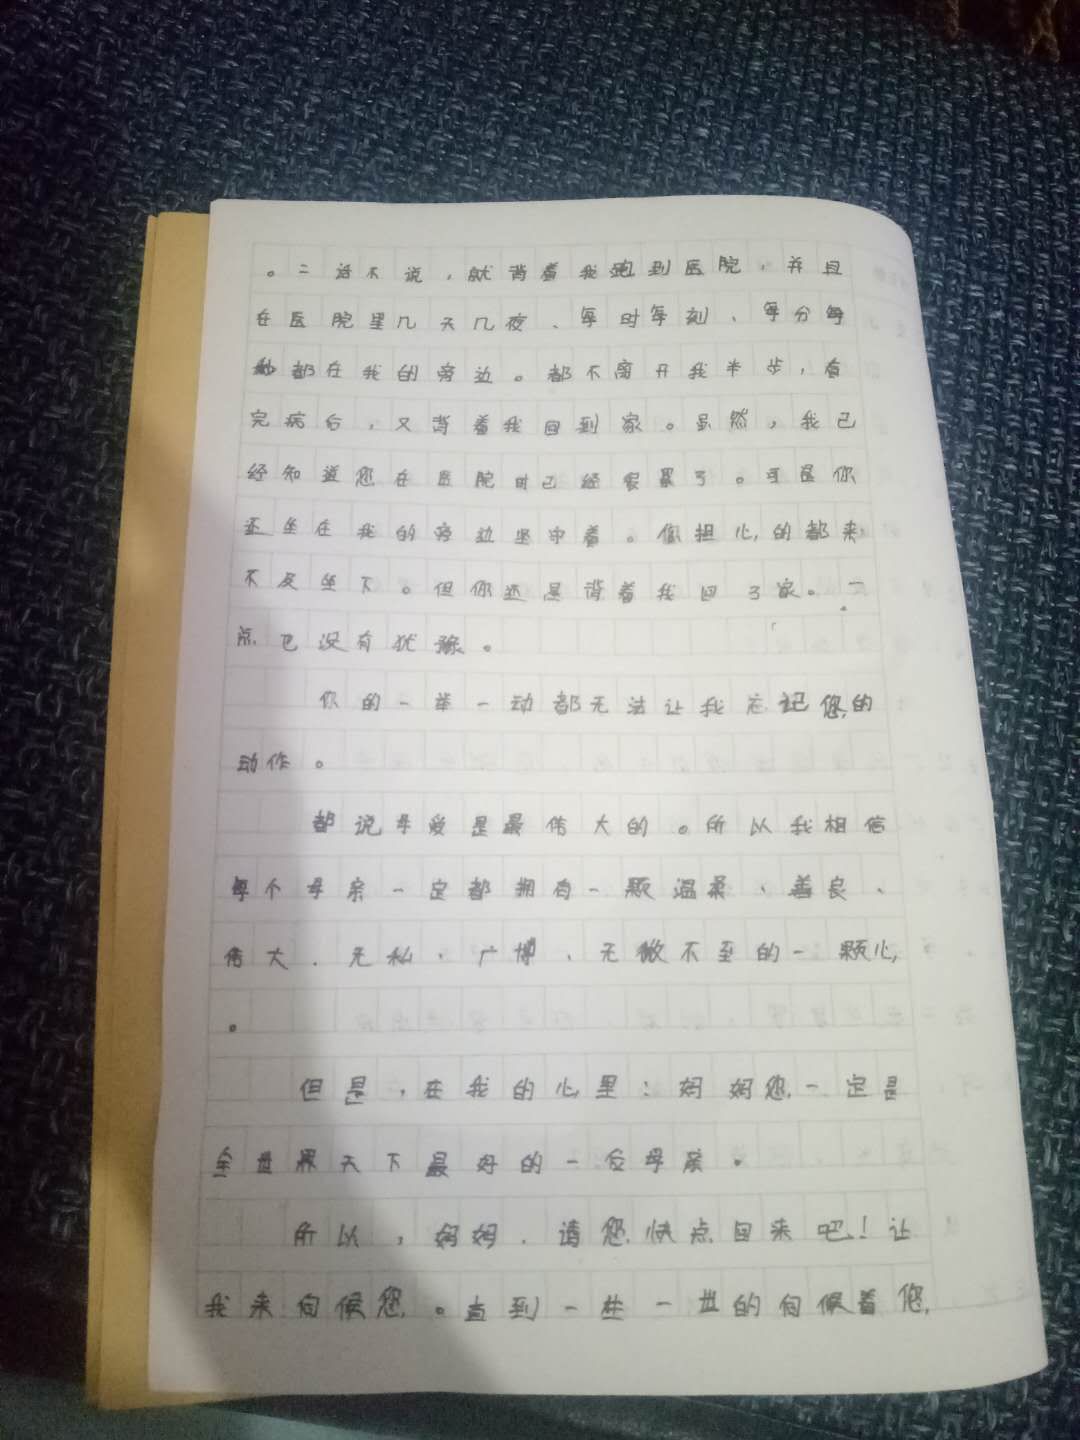 。二话不说，就背着我跑到医院，并且
在医院里几天几夜、每时每刻、每分每
秒都在我的旁边。都不离开我半步，看
完病后，又背着我回到家。虽然，我已
经知道您在医院时已经很累了。可是你
还坐在我的旁边坚守着。您担心的都来
不及坐下。但你还是背着我回了家。一
点也没有犹豫。
你的一举一动都无法让我忘记您的
动作。
都说母爱是最伟大的。所以我相信
每个母亲一定都拥有一颗温柔、善良、
伟大、无私、广博、无微不至的一颗心
。
但是，在我的心里：妈妈您一定是
全世界天下最好的一位母亲。
所以，妈妈、请您快点回来吧！让
我来伺候您。直到一生一世的伺候着您